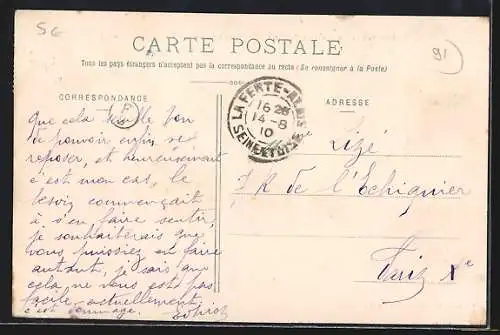 56
91
CARTE POSTALE
Tous les pays étrangers n'acceptent pas la correspondance au recto (Se renseigner à la Poste)
CORRESPONDANCE
ADRESSE
F
LA FERTE-ALAIS
16 25
14-8
10
SEINE ET OISE
que cela semble bon
de pouvoir enfin se
reposer, et heureusement
c'est mon cas, le
besoin commençait
à s'en faire sentir,
je souhaiterais que
vous puissiez en faire
autant, je sais que
cela ne vous est pas
facile actuellement,
c'est dommage.
Lizé
7 R de l'Echiquier
Paris Xe